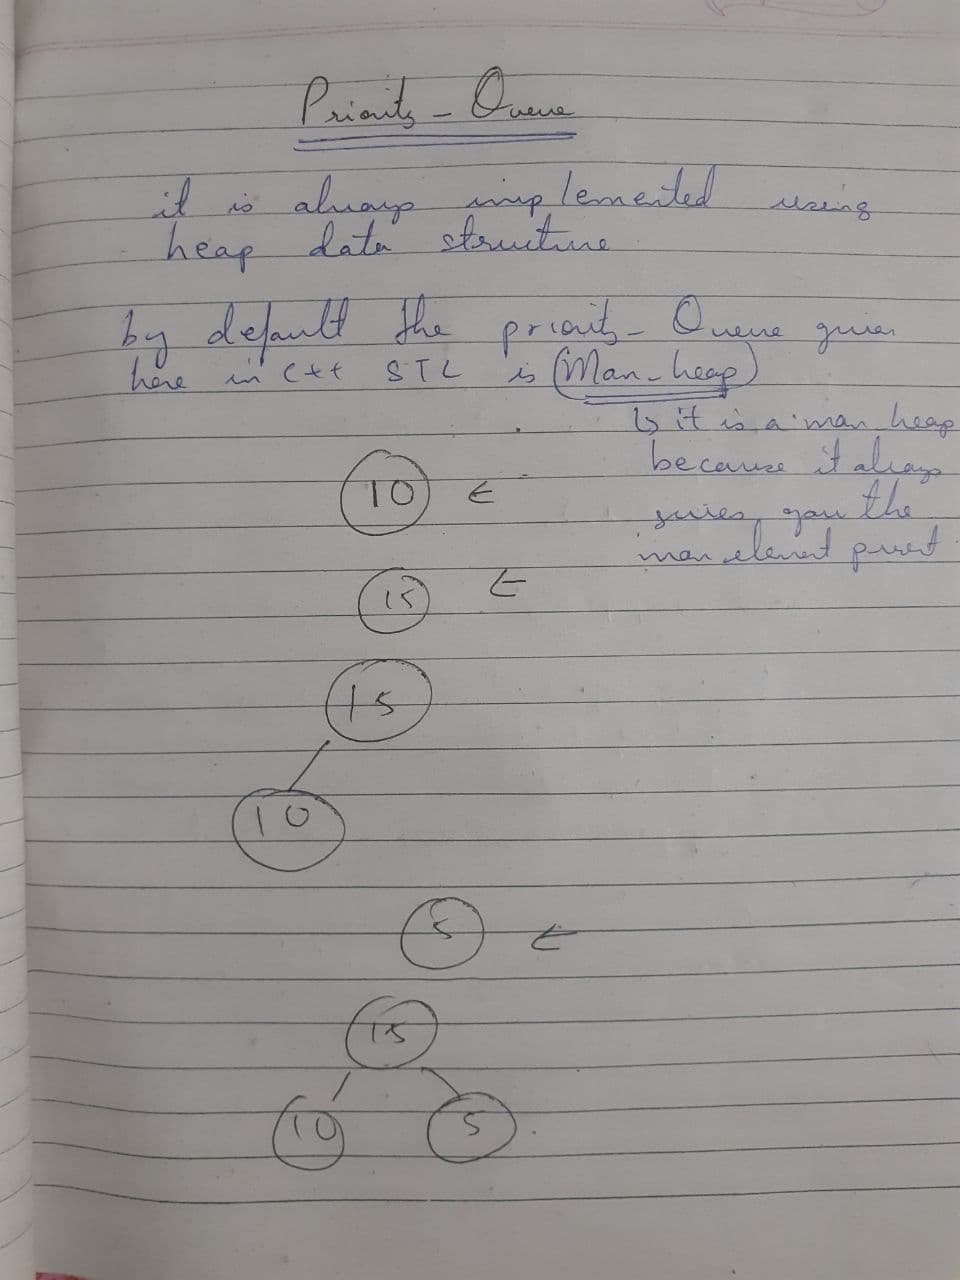 Priority - Queue
it is always implemented using
heap data structure
by default the priority - Queue given
here in C++ STL is Max-heap
↳ it is a max heap
because it always
gives you the
max element first
10 ←
15 ←
15
10
5 ←
15
10 5